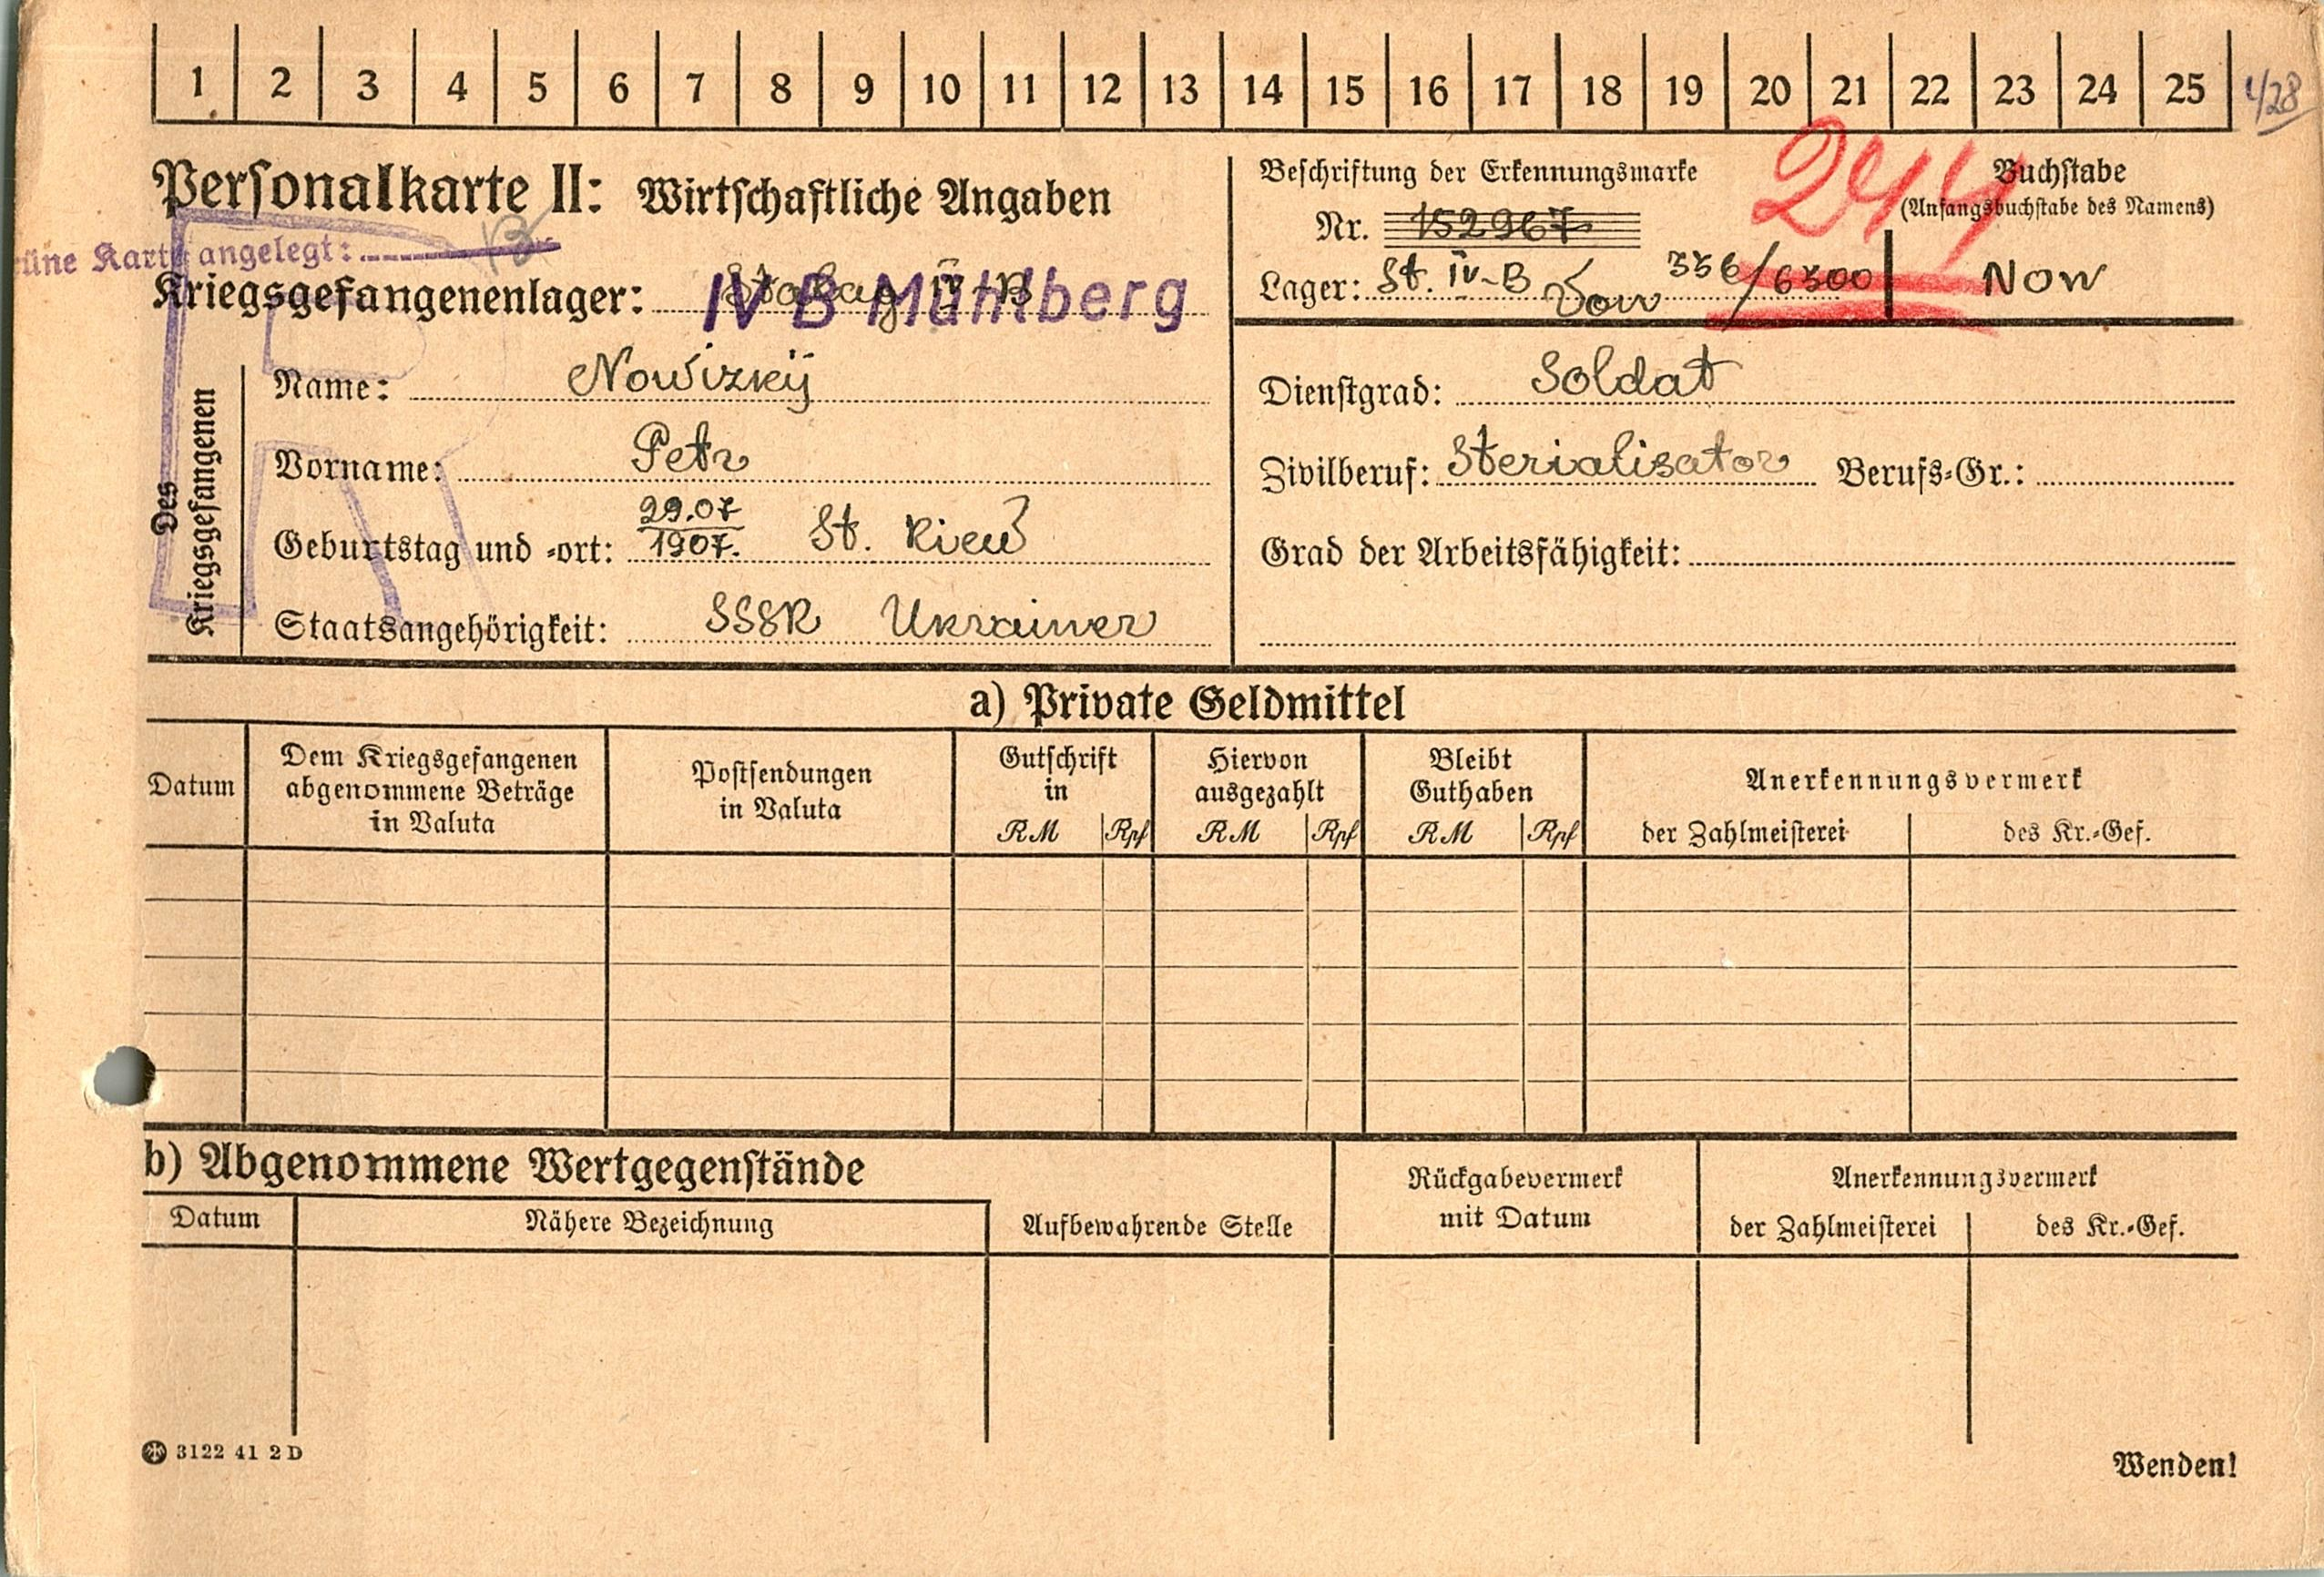 1 2 3 4 5 6 7 8 9 10 11 12 13 14 15 16 17 18 19 20 21 22 23 24 25
Personalkarte II: Wirtschaftliche Angaben
üne Karte angelegt:
Kriegsgefangenenlager: Stalag IV-B
IV B Mühlberg
Beschriftung der Erkennungsmarke
Nr. 152967
Lager: St. IV-B 336/6300
244
Buchstabe
(Anfangsbuchstabe des Namens)
Now
Des
Kriegsgefangenen
Name: Nowizkij
Vorname: Petr
Geburtstag und -ort: 29.07 1907. St. Kiew
Staatsangehörigkeit: SSSR Ukrainer
Dienstgrad: Soldat
Zivilberuf: Sterialisator Berufs-Gr.:
Grad der Arbeitsfähigkeit:
a) Private Geldmittel
Datum
Dem Kriegsgefangenen
abgenommene Beträge
in Valuta
Postsendungen
in Valuta
Gutschrift
in
RM Rpf
Hiervon
ausgezahlt
RM Rpf
Bleibt
Guthaben
RM Rpf
Anerkennungsvermerk
der Zahlmeisterei des Kr.-Gef.
b) Abgenommene Wertgegenstände
Datum Nähere Bezeichnung Aufbewahrende Stelle
Rückgabevermerk
mit Datum
Anerkennungsvermerk
der Zahlmeisterei des Kr.-Gef.
3122 41 2 D
Wenden!